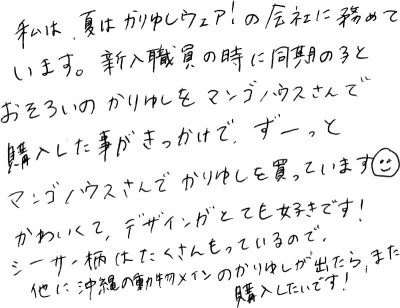 私は、夏はかりゆしウェア!の会社に務めて
います。新入職員の時に同期の子と
おそろいのかりゆしをマンゴハウスさんで
購入した事がきっかけで、ずーっと
マンゴハウスさんでかりゆしを買っています☺
かわいくて、デザインがとても好きです!
シーサー柄はたくさんもっているので、
他に沖縄の動物メインのかりゆしが出たら、また
購入したいです!